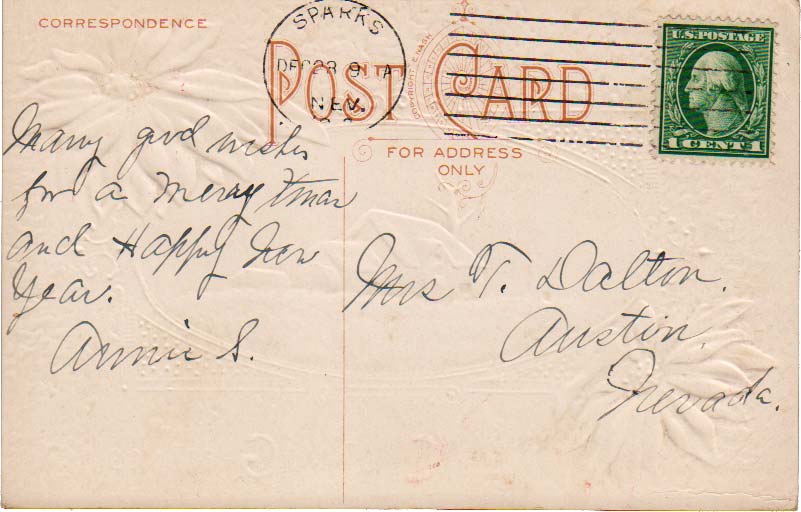 CORRESPONDENCE
SPARKS
NEV.
POST CARD
COPYRIGHT E. NASH
FOR ADDRESS
ONLY
U.S. POSTAGE
1 CENT 1
Many good wishes
for a Merry Xmas
and Happy New
Year.
Annie S.
Mrs T. Dalton.
Austin,
Nevada.